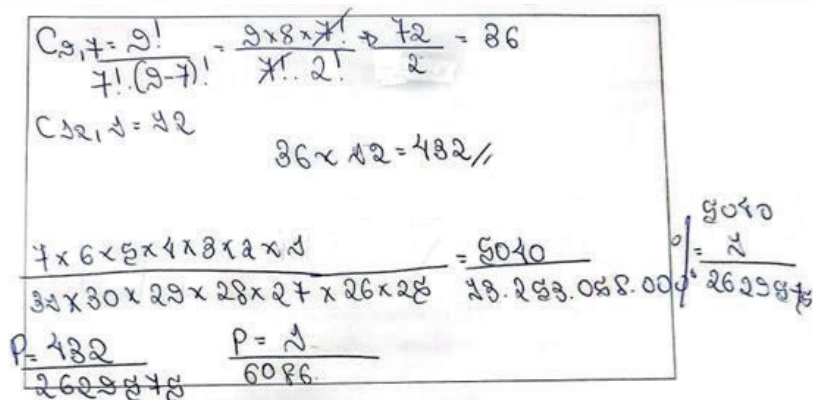 C9,7 = 9! / 7!.(9-7)! = 9x8x7! / 7!. 2! → 72 / 2 = 36
C12,1 = 12
36 x 12 = 432 //
7 x 6 x 5 x 4 x 3 x 2 x 1 / 31 x 30 x 29 x 28 x 27 x 26 x 25 = 5040 / 13.253.058.000 = 1 / 2629575
5040
P = 432 / 2629575 P = 1 / 6086.